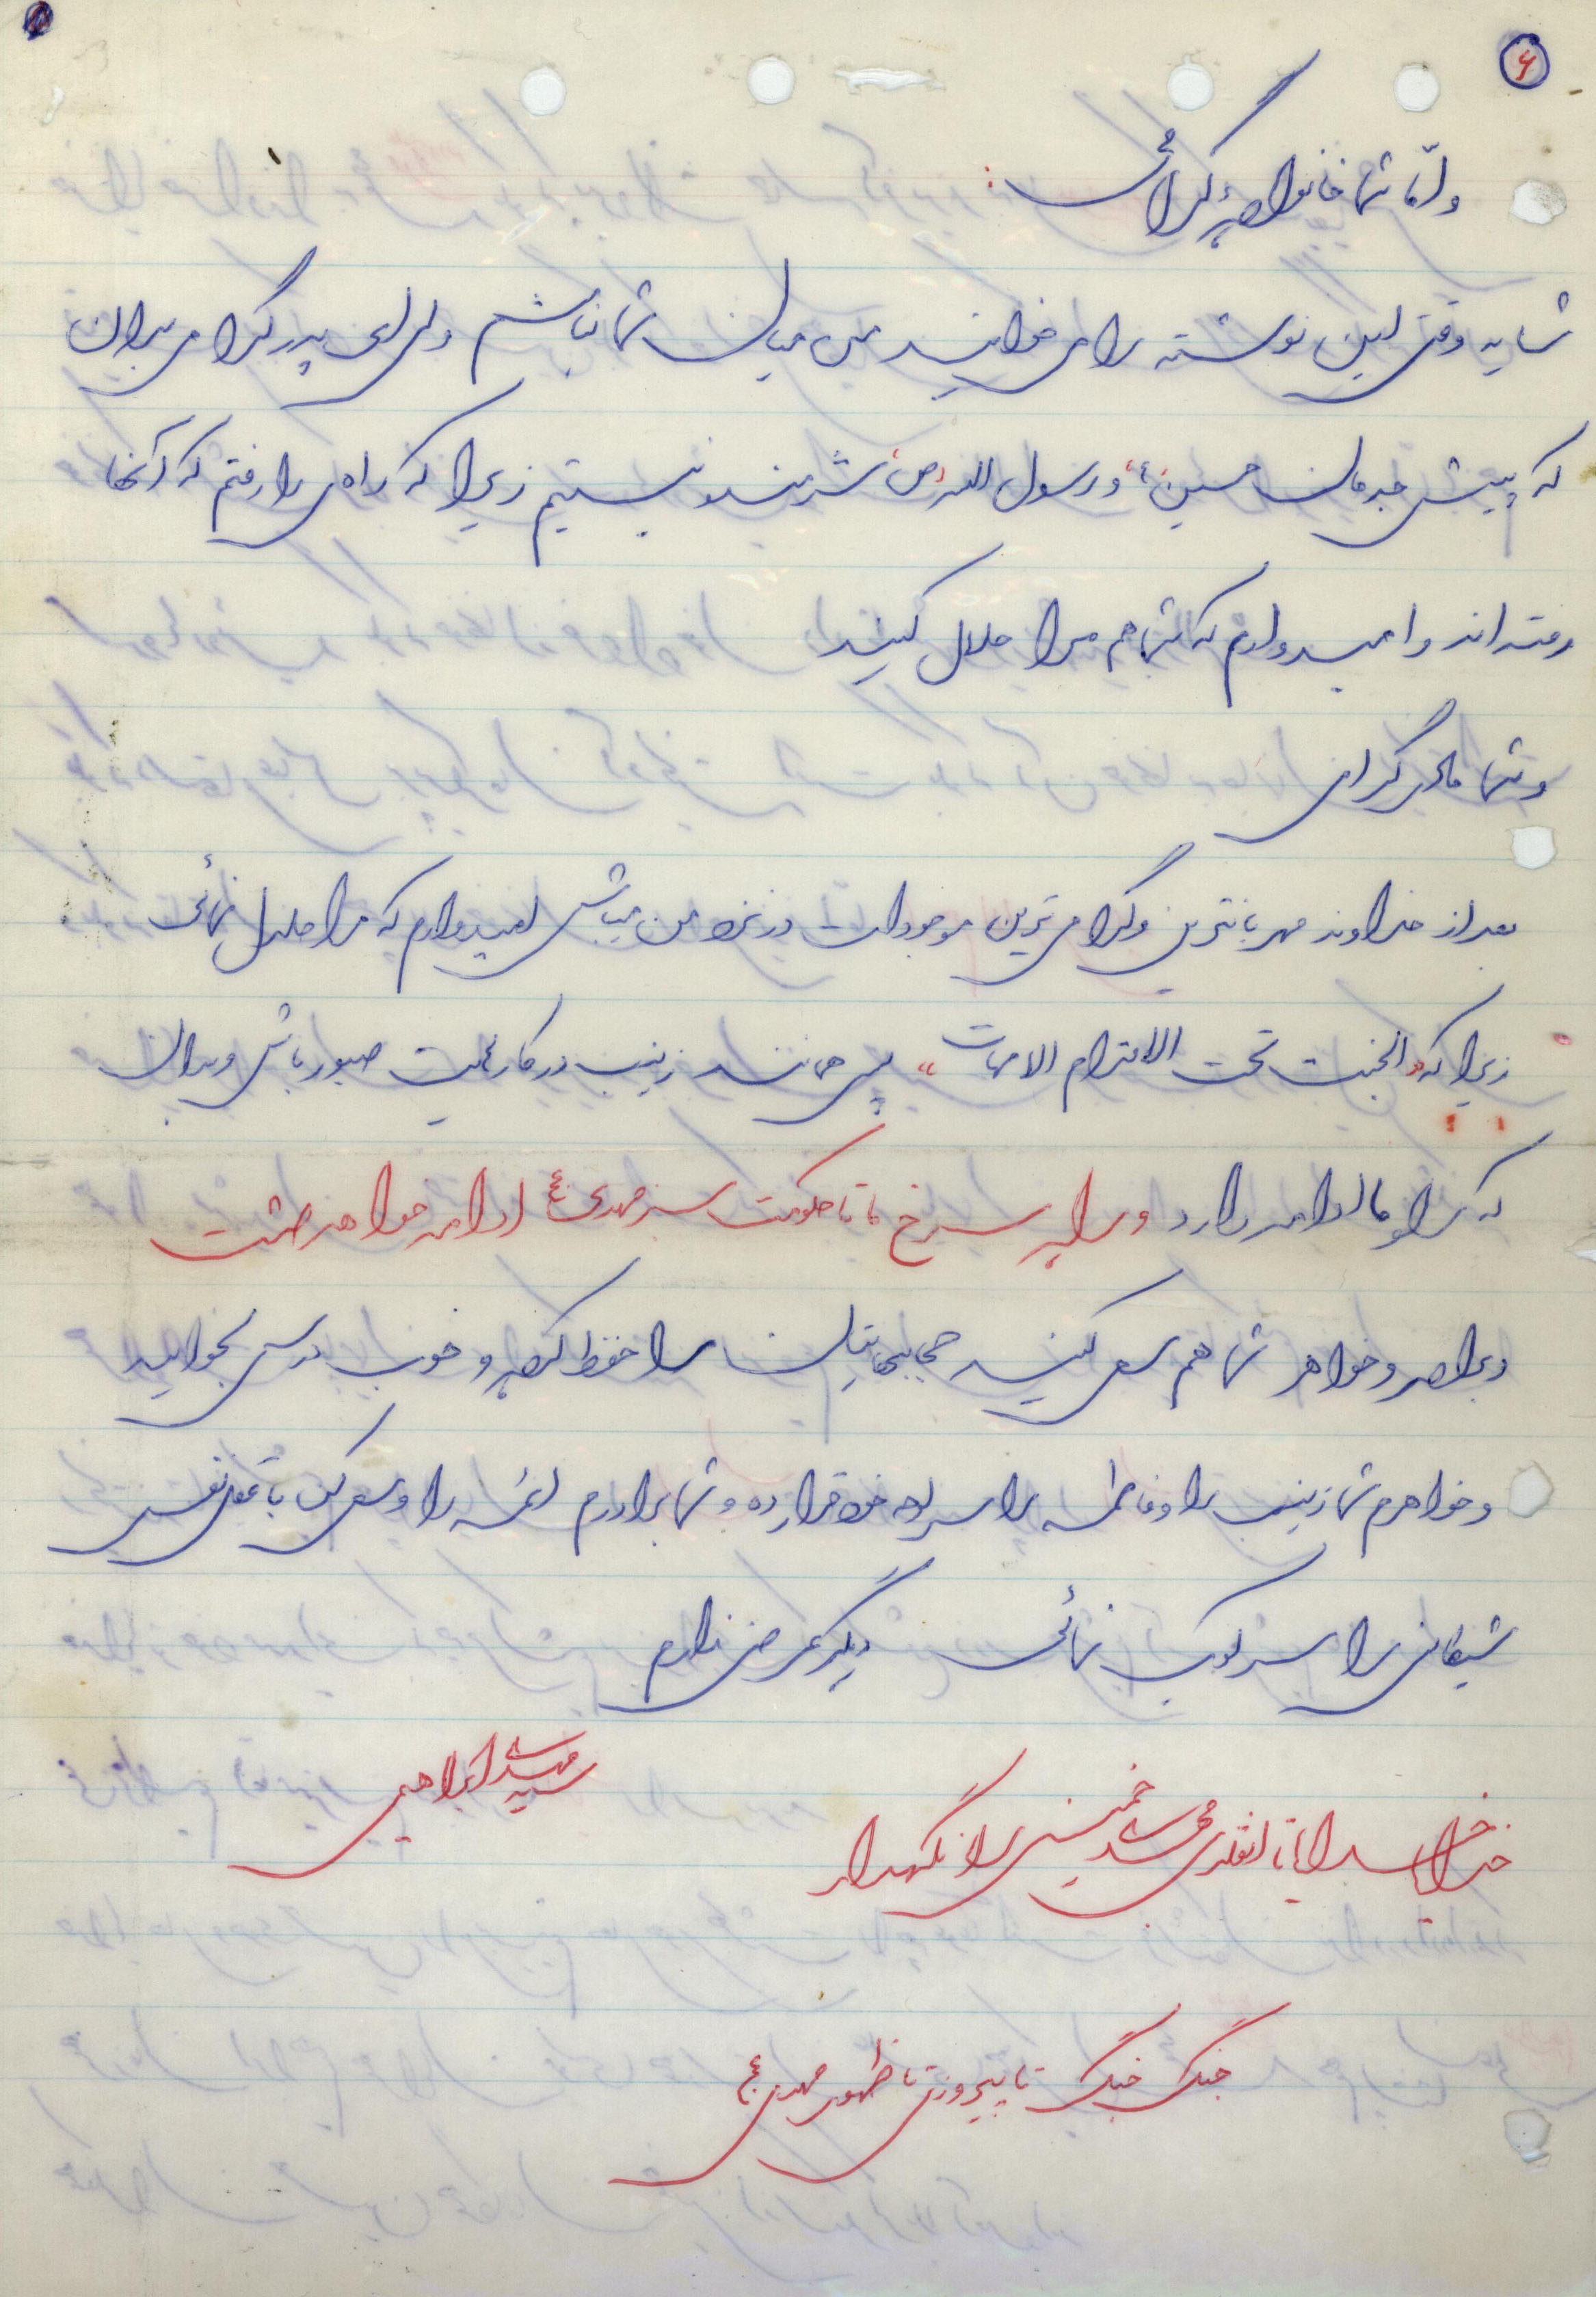 ۶
و امّا شما خانواده گرامی:
شاید وقتی این نوشته را می خوانید من میان شما نباشم ولی ای پدر گرامی بدان
که پیش جدمان حسین "ع" و رسول الله "ص" شرمنده نیستیم زیرا که راهی را رفتم که آنها
رفته اند و امیدوارم که شما هم مرا حلال کنید
و شما مادر گرامی
بعد از خداوند مهربانترین و گرامی ترین موجودات در نزد من میباشی امیدوارم که مرا حلال نمائی
زیرا که "الجنت تحت الاقدام الامهات" پس همانند زینب در کارهایت صبور باش و بدان
که کربلا ادامه دارد و راه سرخ ما تا حکومت سبز مهدی عج ادامه خواهد داشت
و برادر و خواهر شما هم سعی کنید حجابتان را حفظ کرده و خوب درس بخوانید
و خواهرم شما زینب را و فاطمه را سرلوحه خود قرار ده و شما برادرم ائمه را و سعی کن با عقل نفس
شیطانی را سرکوب نمائی دیگر عرضی ندارم
سید مهدی ابراهیمی
خدایا خدایا تا انقلاب مهدی خمینی را نگهدار
جنگ جنگ تا پیروزی تا ظهور مهدی عج